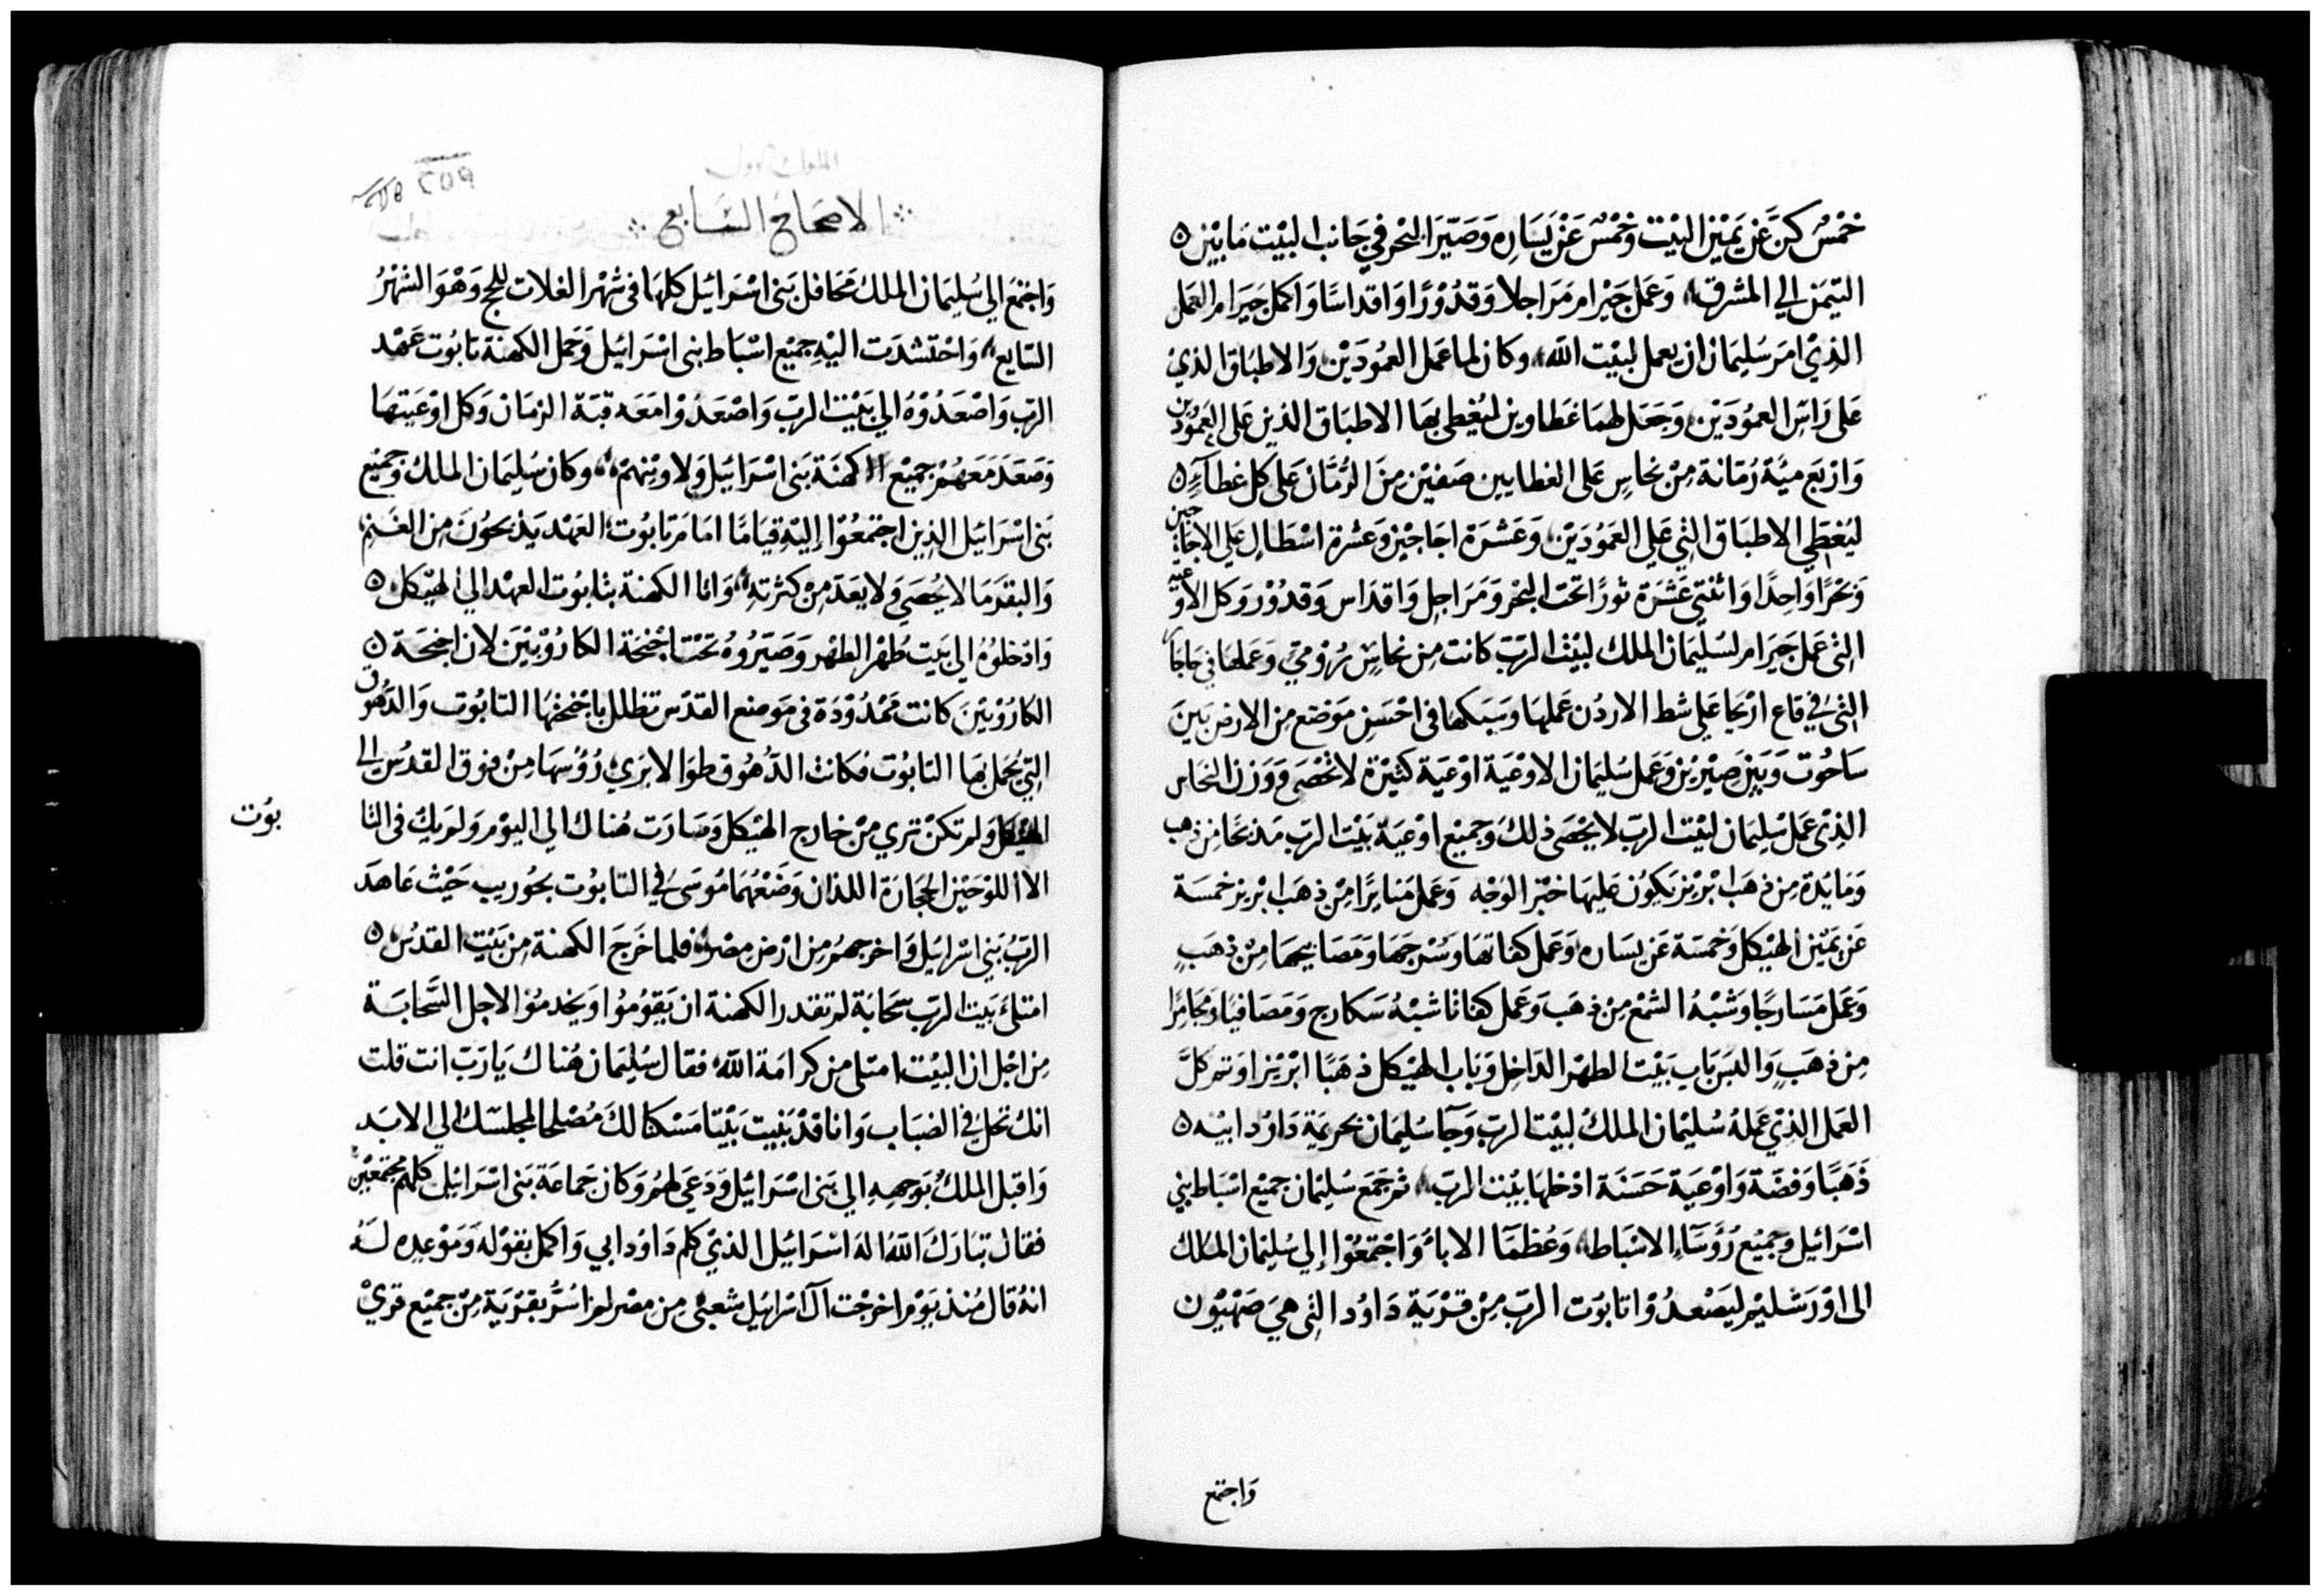 خمسُ كنَّ عَن يَمِيْن البيْت وَخَمْسٌ عَنْ يَسَارِهِ وَصَيّرَ البَحْر فِي جَانب البيْت مَا بَيْن
التيمَن الي المشرق وَعَمل حِيْرام مَرَاجلا وَقدُوْرًا وَاقداسًا وَاكمل حِيَرام العَمل
الذِيْ امَر سُليمَان ان يعمل لبيْت الله وكان لما عَمل العمُودَيْن وَالاطبَاق الذيْ
عَلى رَاسِ العمُودَيْن وَجَعَل لهمَا غَطاوين ليُغطي بهَا الاطبَاق الذين على العَمُودَين
وَارْبَع ميَّة رُمَانة مِنْ نحاسٍ عَلى الغطايين صَفيْن مِنَ الرُمَّان عَلى كل غطآءٍ
ليُغطَي الاطبَاق التِي عَلي العَمُودَيْن وَعَشرَة اجَاجيْن وَعَشرة اسْطَالٍ عَلي الاجاجين
وَبَحْرًا وَاحِدًا وَاثنتي عَشَرَة ثورًا تحَت البَحْر وَمَرَاجِل وَاقدَاس وَقدُوْر وَكل الاوْعيَة
التِى عَمل حِيَرام لسُليمَان الملك لبيْت الرَبّ كانت مِن نحاسٍ رُوْمي وَعَملهَا في جَاجَا
التِىْ في قاع ارْيحَا عَلي شط الاردُن عَملهَا وَسَبكهَا فى احْسَن مَوْضع مِن الارض بَينَ
سَاحُوت وَبَيْن صِيْريْن وَعَمل سُليمَان الاوْعيَة اوْعيَة كثيْرَة لا تُحْصَى وَوَزن النحَاس
الذِيْ عَمل سُليمَان لبيْت الرَبّ لا يُحْصَى ذلكَ وَجميْع اوْعيَة بَيْت الربّ مَذبحًا مِن ذهب
وَمَايْدة مِن ذهَب ابْريْز يَكوُن عَليهَا خبْز الوَجْه وَعَمل مَنايرًا مِنْ ذهَب ابْريز خمسَة
عَن يَميْن الهَيْكل وَخمسَة عَن يسَاره وَعَمل كفاتهَا وَسُرجَهَا وَمَصَابيْحهَا مِنْ ذهَبٍ
وَعَمل مَسَارجًا وَشبْهُ الشمْع مِنْ ذهَب وَعَمل كفاتا شبْهُ سَكارج وَمَصَافيًا وَمجَامرًا
مِن ذهَبٍ وَالبس بَاب بَيْت الطهْر الدَاخِل وَبَاب الهَيْكل ذهَبًا ابْريْزا وَتم كلَّ
العَمل الذِيْ عَملهُ سُليْمَان الملكُ لبيْت الربّ وَجَآ سُليْمَان بحريْمَة دَاوُد ابيْه
ذَهَبًا وَفضَة وَاوْعيَة حَسَنَة ادْخلهَا بَيْت الربّ ثم جَمَع سُليْمَان جميْع اسْبَاط بَنِي
اسْرَائيْل وَجميْع رُؤسَآءِ الاسْبَاط وَعُظمَآ الابآءُ وَاجْتمَعُوْا إلي سُليْمَان الملك
الى اوْرَشليْم ليَصْعدُوْا تابوُت الربّ مِنْ قرْيَة دَاوُد التِى هِيَ صَهْيُوْن
وَاجتمع
الملوك الاول
٢٥٩
الاصحَاحُ السَّابع
وَاجْتمَعَ الي سُليمَان الملك مَحَافل بَنى اسْرَائيل كلهَا فى شهْر الغلات للحج وَهْوَ الشهْرُ
السَّابع وَاحْتشدَت اليْهِ جميْع اسْبَاط بنى اسْرَائيل وَحَمل الكهنَة تابُوت عَهْد
الربّ وَاصْعَدُوْهُ الي بَيْت الربّ وَاصْعَدُوْا مَعَه قبَة الزمَان وَكل اوْعيَتهَا
وَصَعَدَ مَعَهُم جميْع الكهنَة بَنى اسْرَائيل وَلاويْنهِمْ وَكان سُليْمَان الملك وَجميْع
بَنى اسْرَائيل الذِين اجْتمعُوْا إليْهِ قيَامًا امَامَ تابُوت العَهْد يَذبحُوْنَ مِن الغَنم
وَالبقر مَا لا يُحصَي وَلا يعَدّ مِنْ كثرَتهِ وَامّا الكهنة بتابوُت العهْد الي الهيْكل
وَادْخلوُهُ الي بَيت طُهْر الطهْر وَصَيَرُوْهُ تحْت اجْنحَة الكارُوْبيْنَ لان اجنحَة
الكارُوْبيْنَ كانت مَمْدُوْدَة فى مَوضع القدْس تظلل باجْنحهَا التابُوت وَالدّهُوْق
التِي يحُمل بهَا التابُوت فكانت الدَّهُوْق طوَالا يرَي رُؤسهَا مِنْ فوق القدْس الي
الهَيْكل وَلمْ تكنْ تري مِنْ خَارج الهيْكل وَصَارَت هُناك الي اليوْمِ وَلمْ يَكُ في التا
بوُت
الا اللوْحَيْن الحِجَارَة اللذان وَضَعْهُمَا مُوسَى في التابوُت بحُوريب حَيْث عَاهَدَ
الرَبُّ بَنِي اسْرَائيل وَاخرجهمُ مِن ارْض مصْر فلما خَرَجَ الكهنة مِن بَيْتِ القدْس
امتلئ بَيْت الربّ سَحَابَة لم تقدر الكهنة ان يَقوُمُوا وَيَخدمُوْا لاجل السَّحابَة
مِن اجْل ان البيْت امتلى من كرامَة اللهُ فقال سُليْمَان هُناك يَا رَبّ انت قلت
انك تحُل في الضبَاب وَانا قدْ بَنيْت بَيْتا مَسْكنا لكَ مُصْلحا لمجْلسَكَ الي الابَد
وَاقبَل الملكُ بوَجههِ الي بَنى اسْرَائيْل وَدَعَى لهُم وَكان جَماعَة بَنى اسْرَائيْل كلهُم مُجتمعيْن
فقال تبَارَكَ اللهُ الهُ اسْرَائيْل الذيْ كلم دَاوُد ابي وَاكمل بقوْله وَمَوْعدِه لهُ
انهُ قال مُنذ يَوْم اخرجْت آل اسْرَائيل شعبْى مِن مصْر لم اسُرّ بقرْيَةٍ مِنْ جميْع قريْ